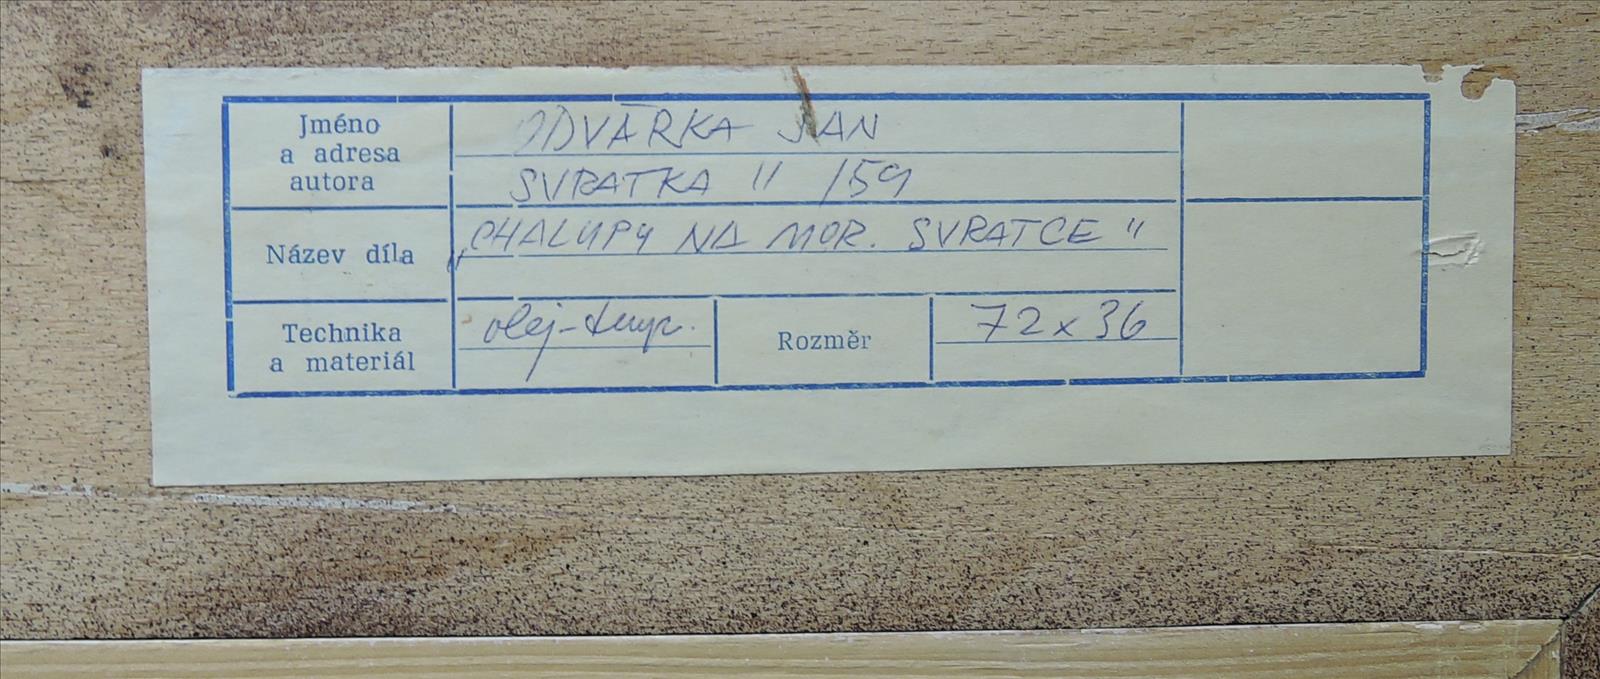 Jméno
a adresa
autora
ODVÁRKA JAN
SVRATKA II /59
Název díla
„CHALUPY NA MOR. SVRATCE"
Technika
a materiál
olej-temp.
Rozměr
72 x 36